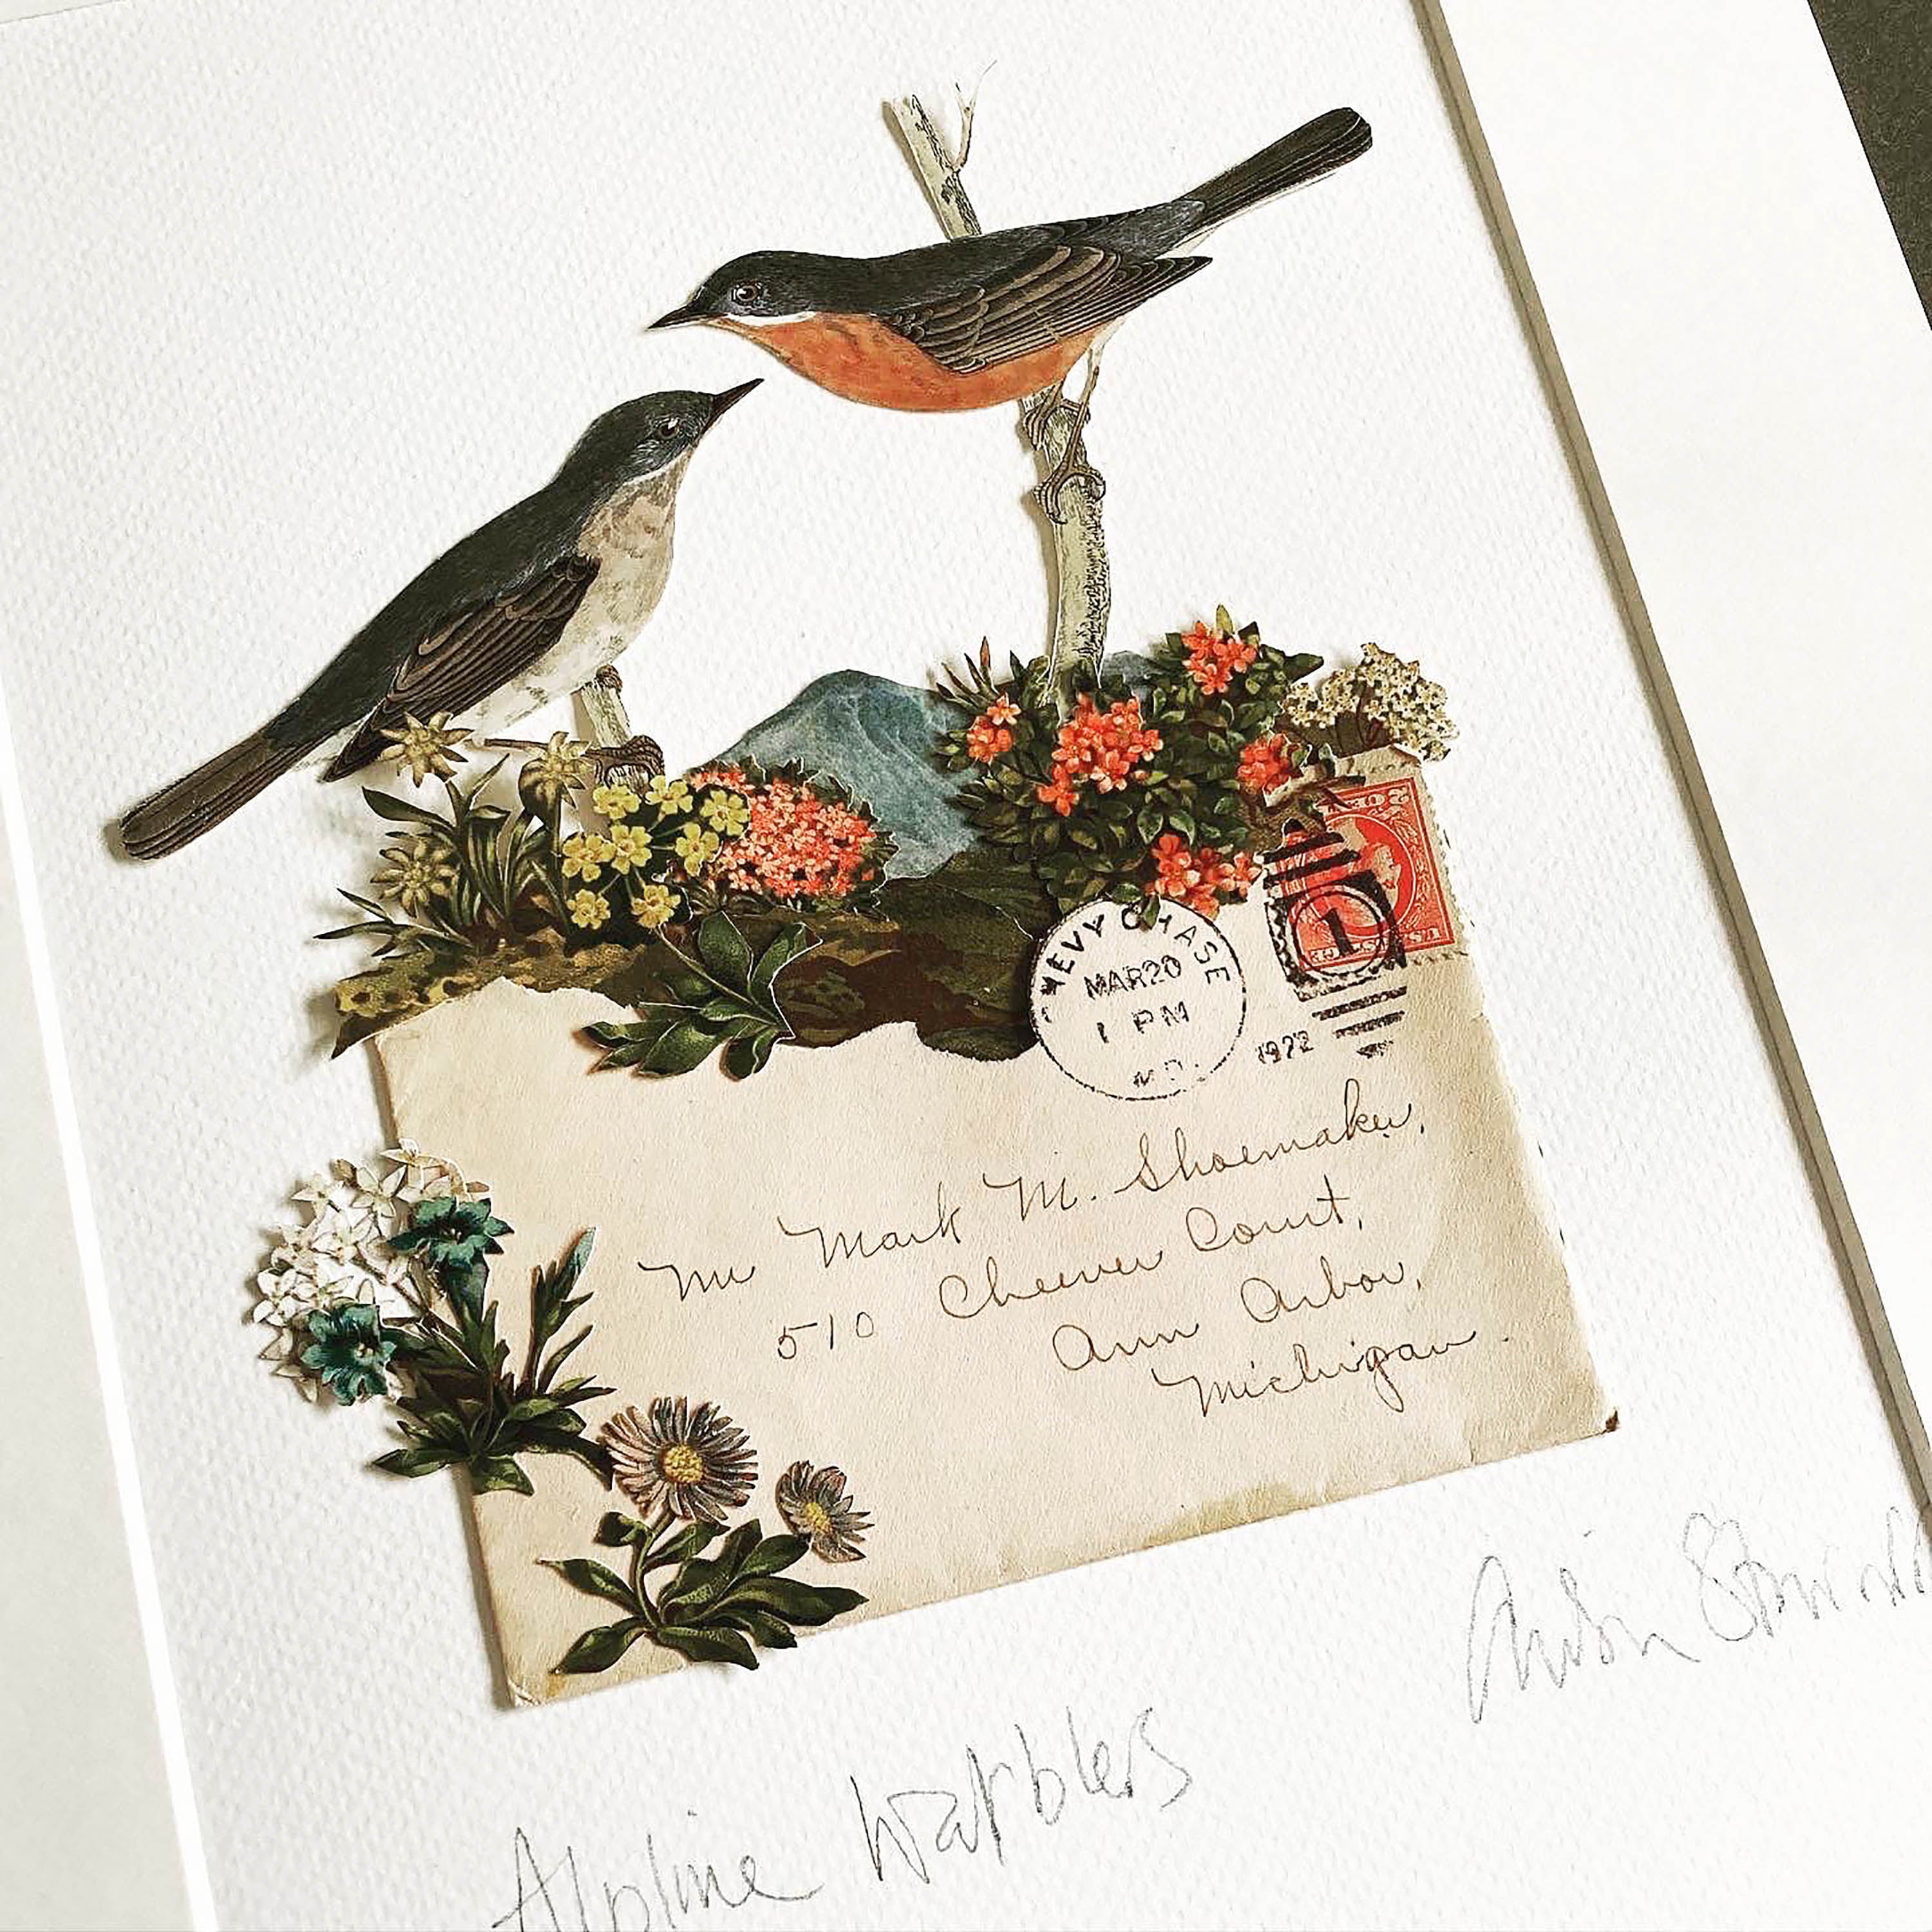 CHEVY CHASE
MAR 20
1 PM
MD.
1922
1
Mr Mark M. Shoemaker,
510 Cheever Court,
Ann Arbor,
Michigan.
Alpine Warblers